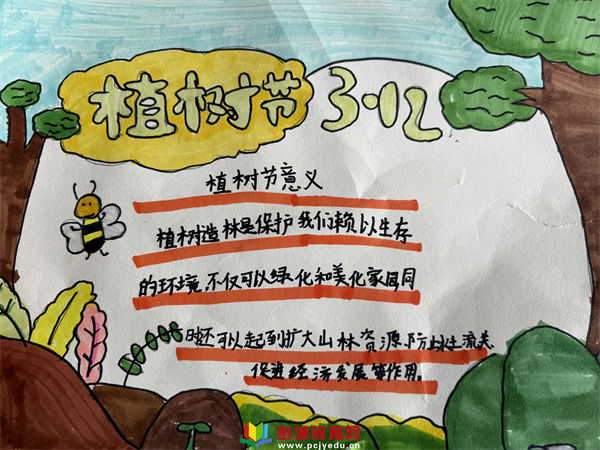 植树节 3·12
植树节意义
植树造林是保护我们赖以生存
的环境,不仅可以绿化和美化家园同
时还可以起到扩大山林资源防止水土流失
促进经济发展等作用。
创域教育网
www.pcjyedu.cn